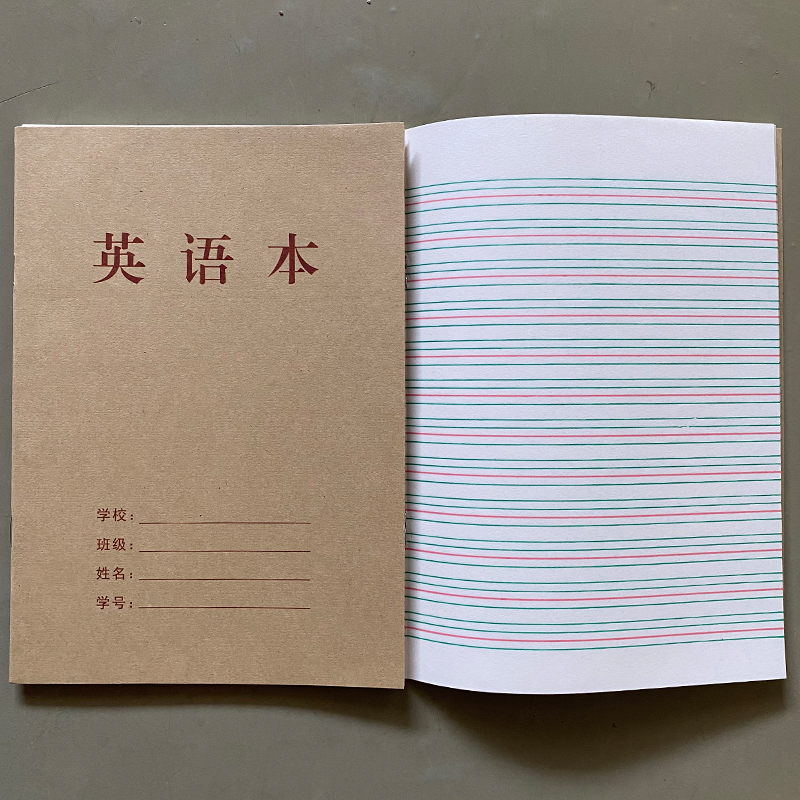 英语本
学校：
班级：
姓名：
学号：